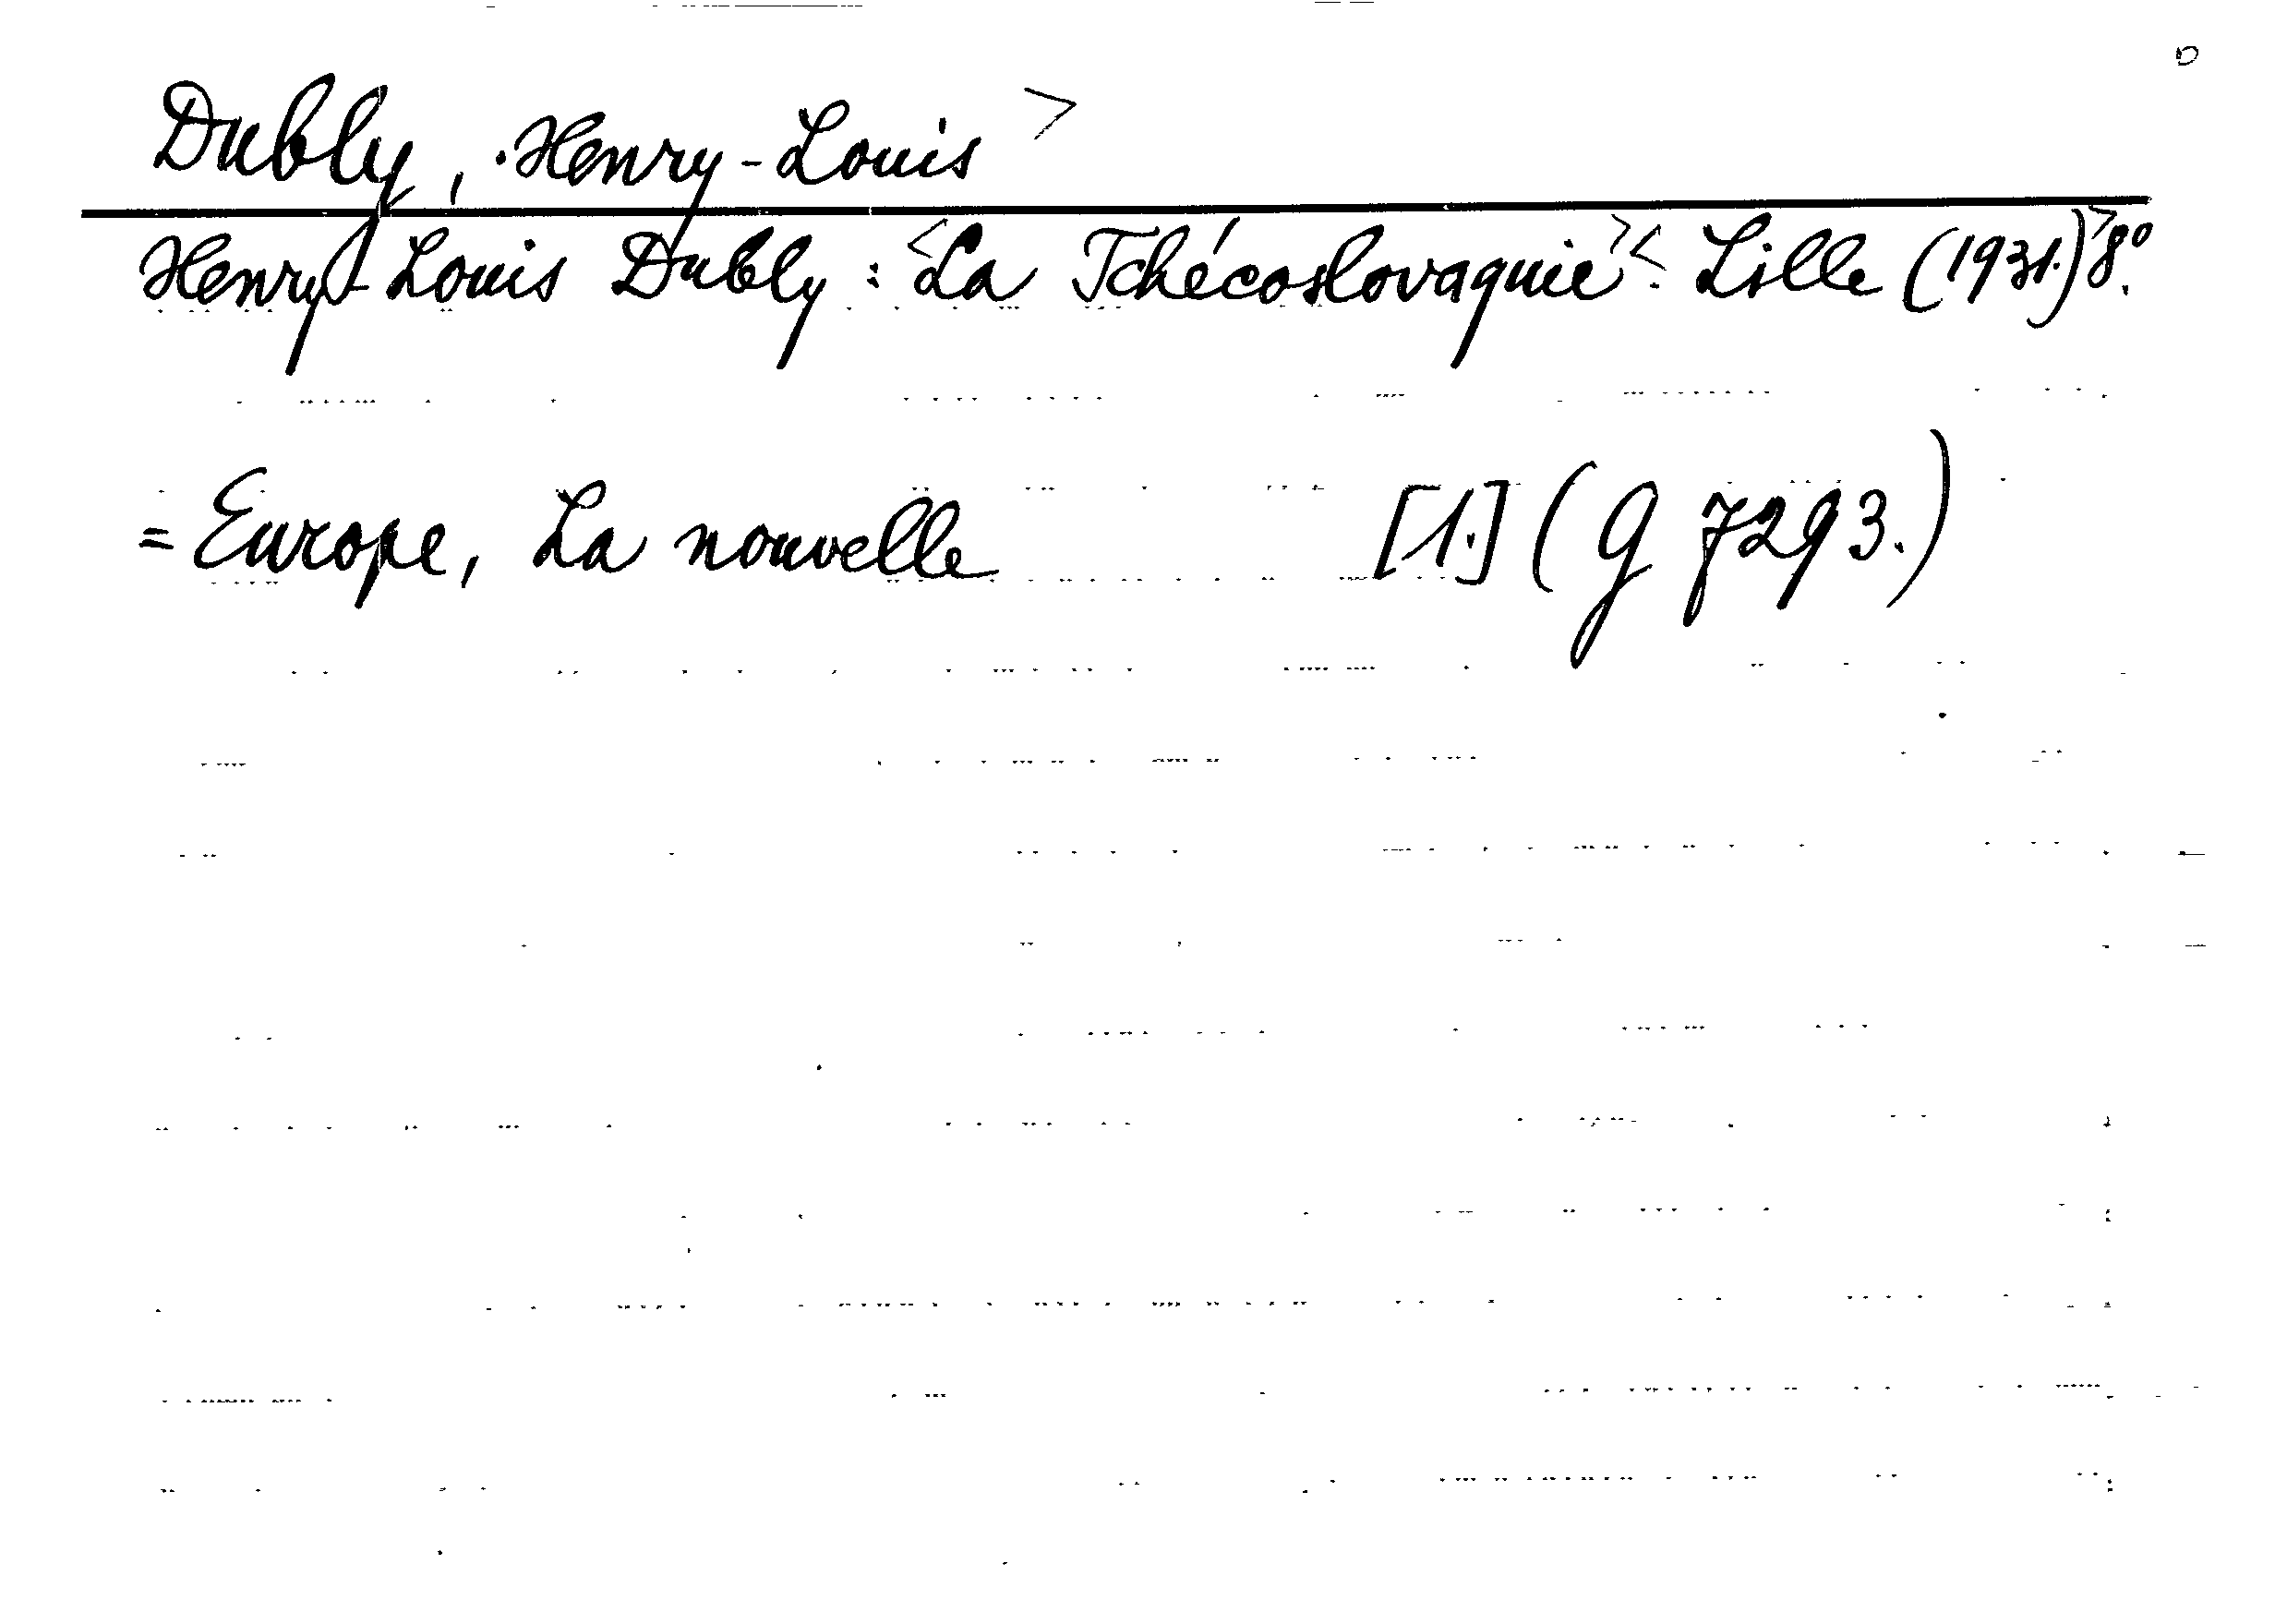 Dubly, Henry-Louis >
Henry-Louis Dubly: <La Tchécoslovaquie> <. Lille (1931.)> 8º.
= Europe, La nouvelle [1.] (G 7293.)